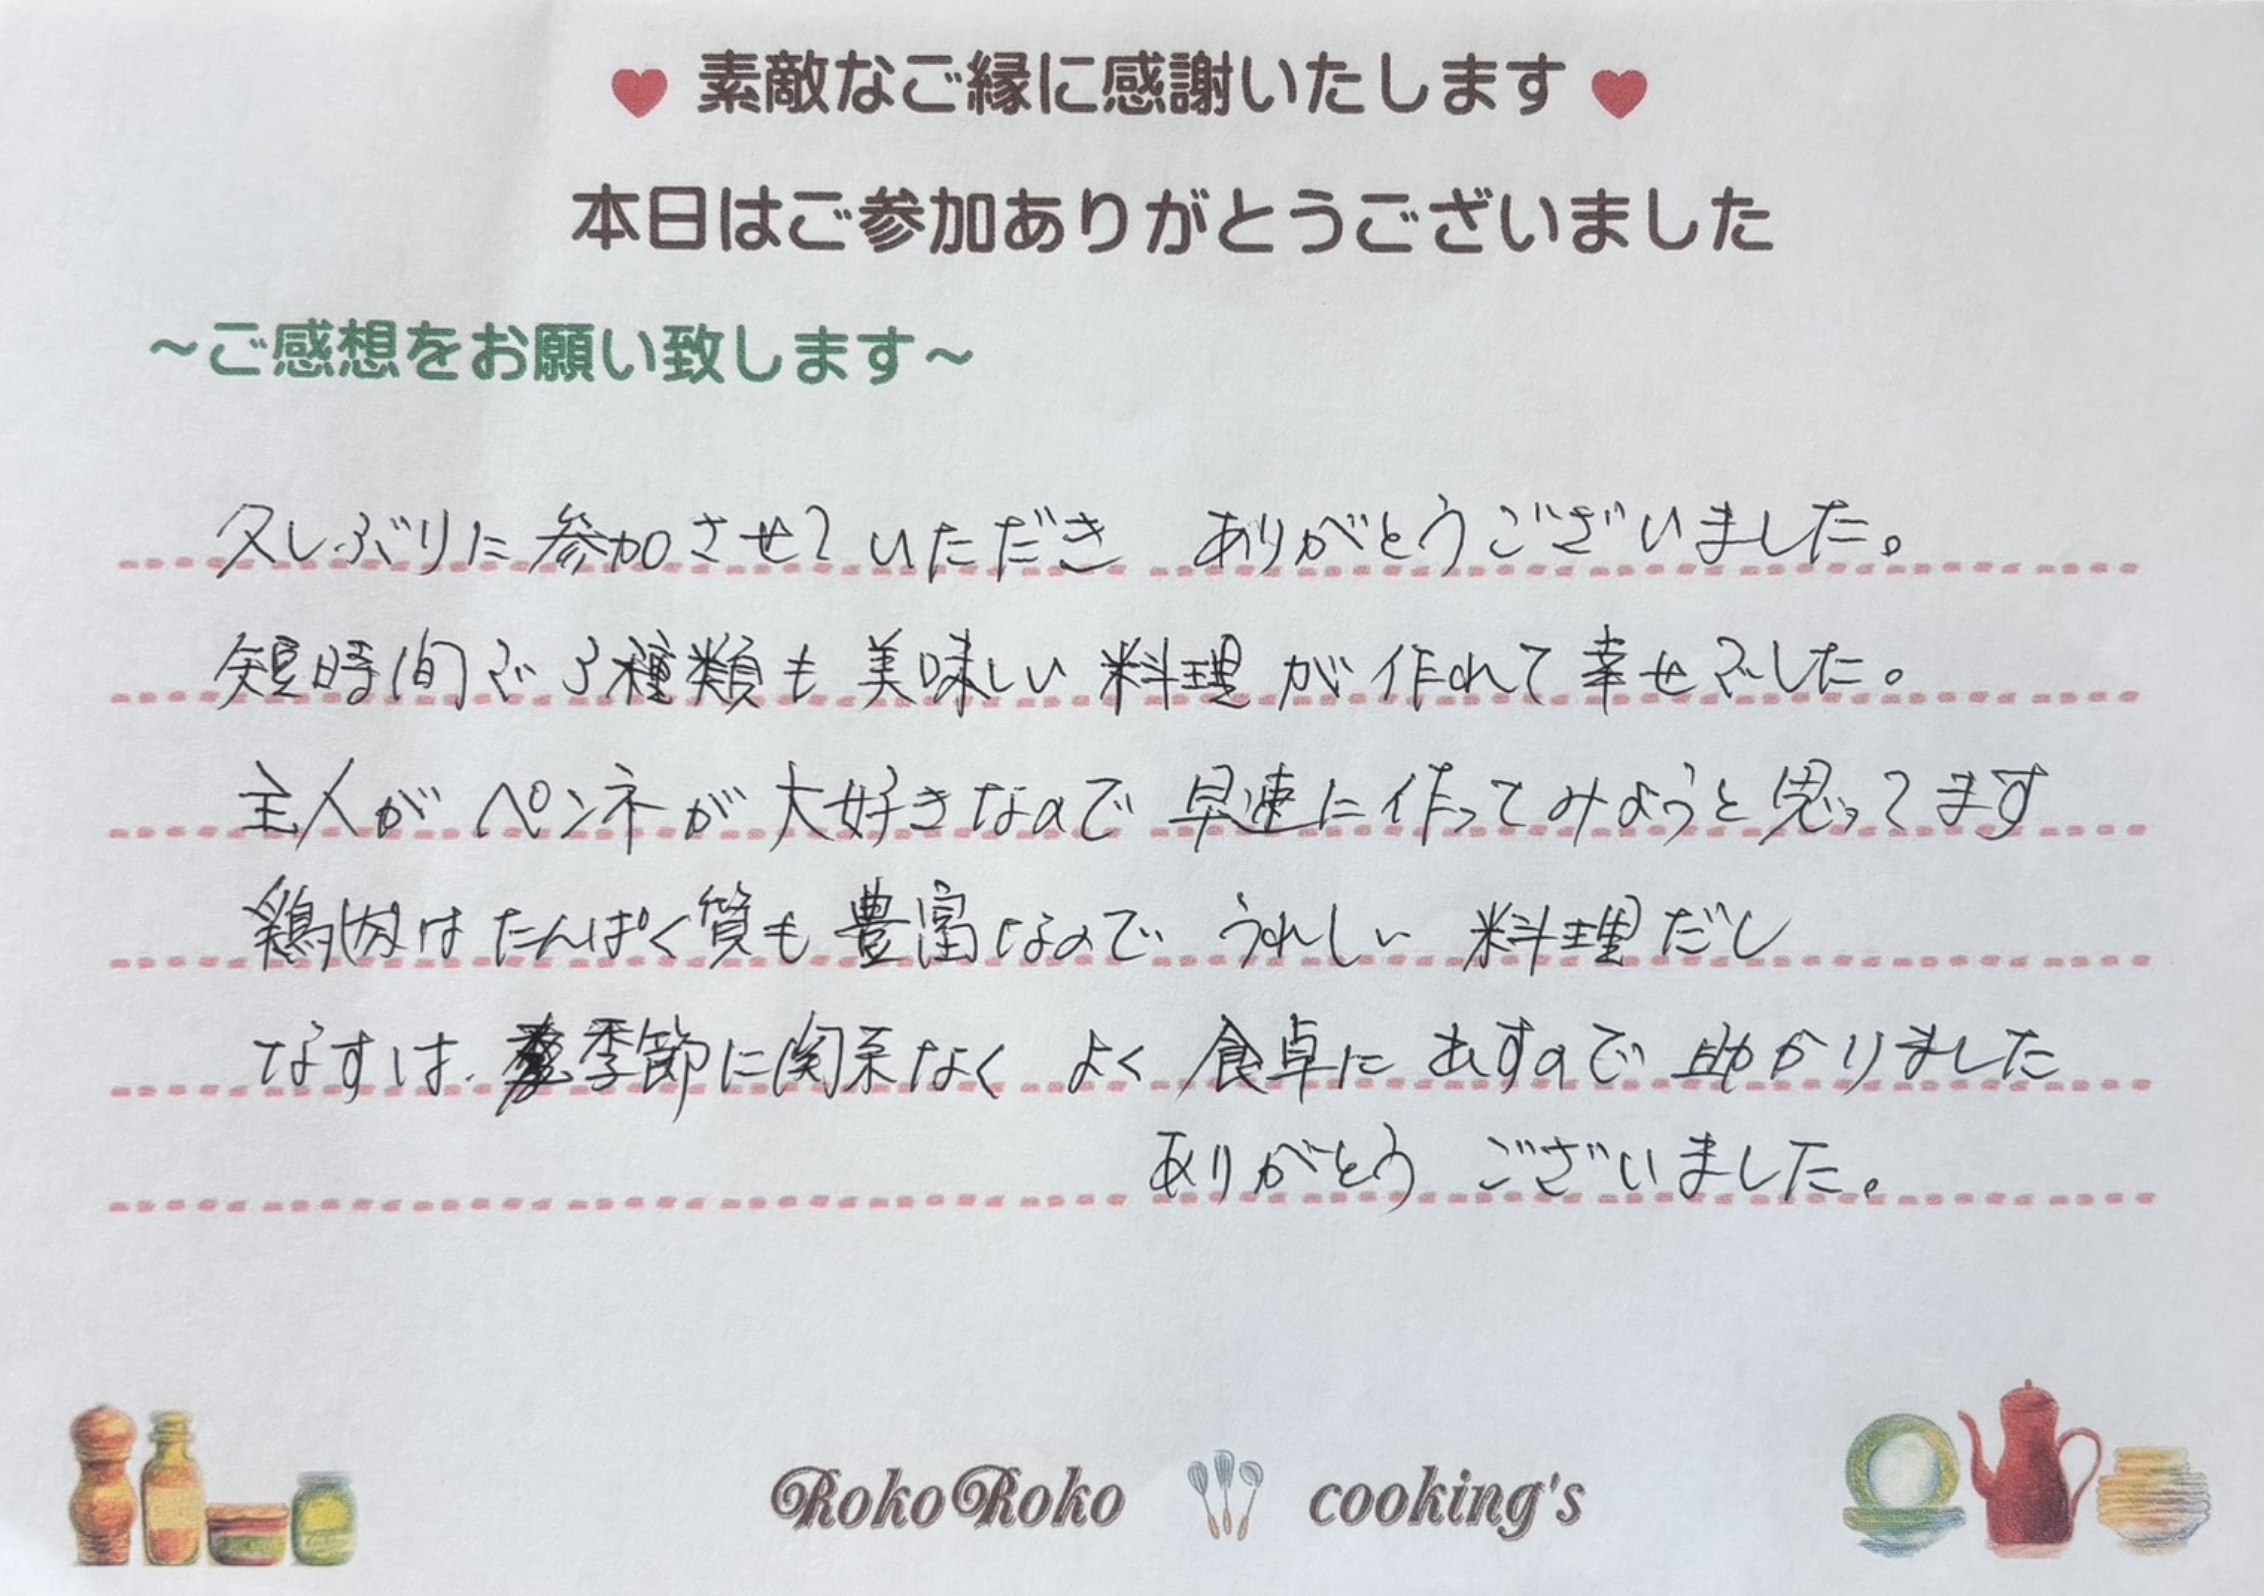 ♥ 素敵なご縁に感謝いたします ♥
本日はご参加ありがとうございました
～ご感想をお願い致します～
久しぶりに参加させていただき ありがとうございました。
短時間で3種類も美味しい料理が作れて幸せでした。
主人がペンネが大好きなので早速に作ってみようと思ってます
鶏肉はたんぱく質も豊富なので うれしい料理だし
なすは、季節に関係なく よく食卓に出すので助かりました
ありがとうございました。
RokoRoko cooking's